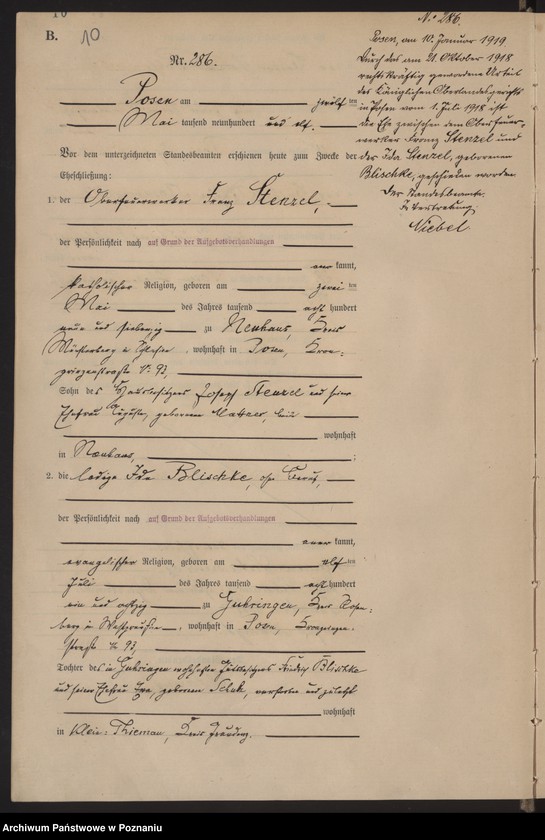 10
B.
10
Nr. 286.
Posen am zwölf ten
Mai tausend neunhundert und elf.
Vor dem unterzeichneten Standesbeamten erschienen heute zum Zwecke der
Eheschließung:
1. der Oberfeuerwerker Franz Stenzel,
der Persönlichkeit nach auf Grund der Aufgebotsverhandlungen
aner kannt,
katholischer Religion, geboren am zwei ten
Mai des Jahres tausend acht hundert
neun und siebenzig zu Neuhaus, Kreis
Münsterberg in Schlesien, wohnhaft in Posen, Kron-
prinzenstraße № 93,
Sohn des Hausbesitzers Josef Stenzel und seiner
Ehefrau Auguste, geborenen
wohnhaft
in Neuhaus,
2. die ledige Ida Blischke, ohne Beruf,
der Persönlichkeit nach auf Grund der Aufgebotsverhandlungen
aner kannt,
evangelischer Religion, geboren am elf ten
Juli des Jahres tausend acht hundert
ein und achtzig zu Guhringen, Kreis Rosen-
berg in Westpreußen, wohnhaft in Posen, Kronprinzen-
straße № 93,
Tochter des in Guhringen wohnhaften Friedrich Blischke
und seiner Ehefrau geborenen verstorben und zuletzt
wohnhaft
in Klein-Thiemau, Kreis Graudenz.
№ 286.
Posen, am 10. Januar 1919
Durch das am 21. Oktober 1918
rechtskräftig gewordene Urteil
des Königlichen Oberlandesgerichts
in Posen vom 1. Juli 1918 ist
die Ehe zwischen dem Oberfeuer-
werker Franz Stenzel und
der Ida Stenzel, geborenen
Blischke, geschieden worden.
Der Standesbeamte.
In Vertretung.
Niebel
Archiwum Państwowe w Poznaniu